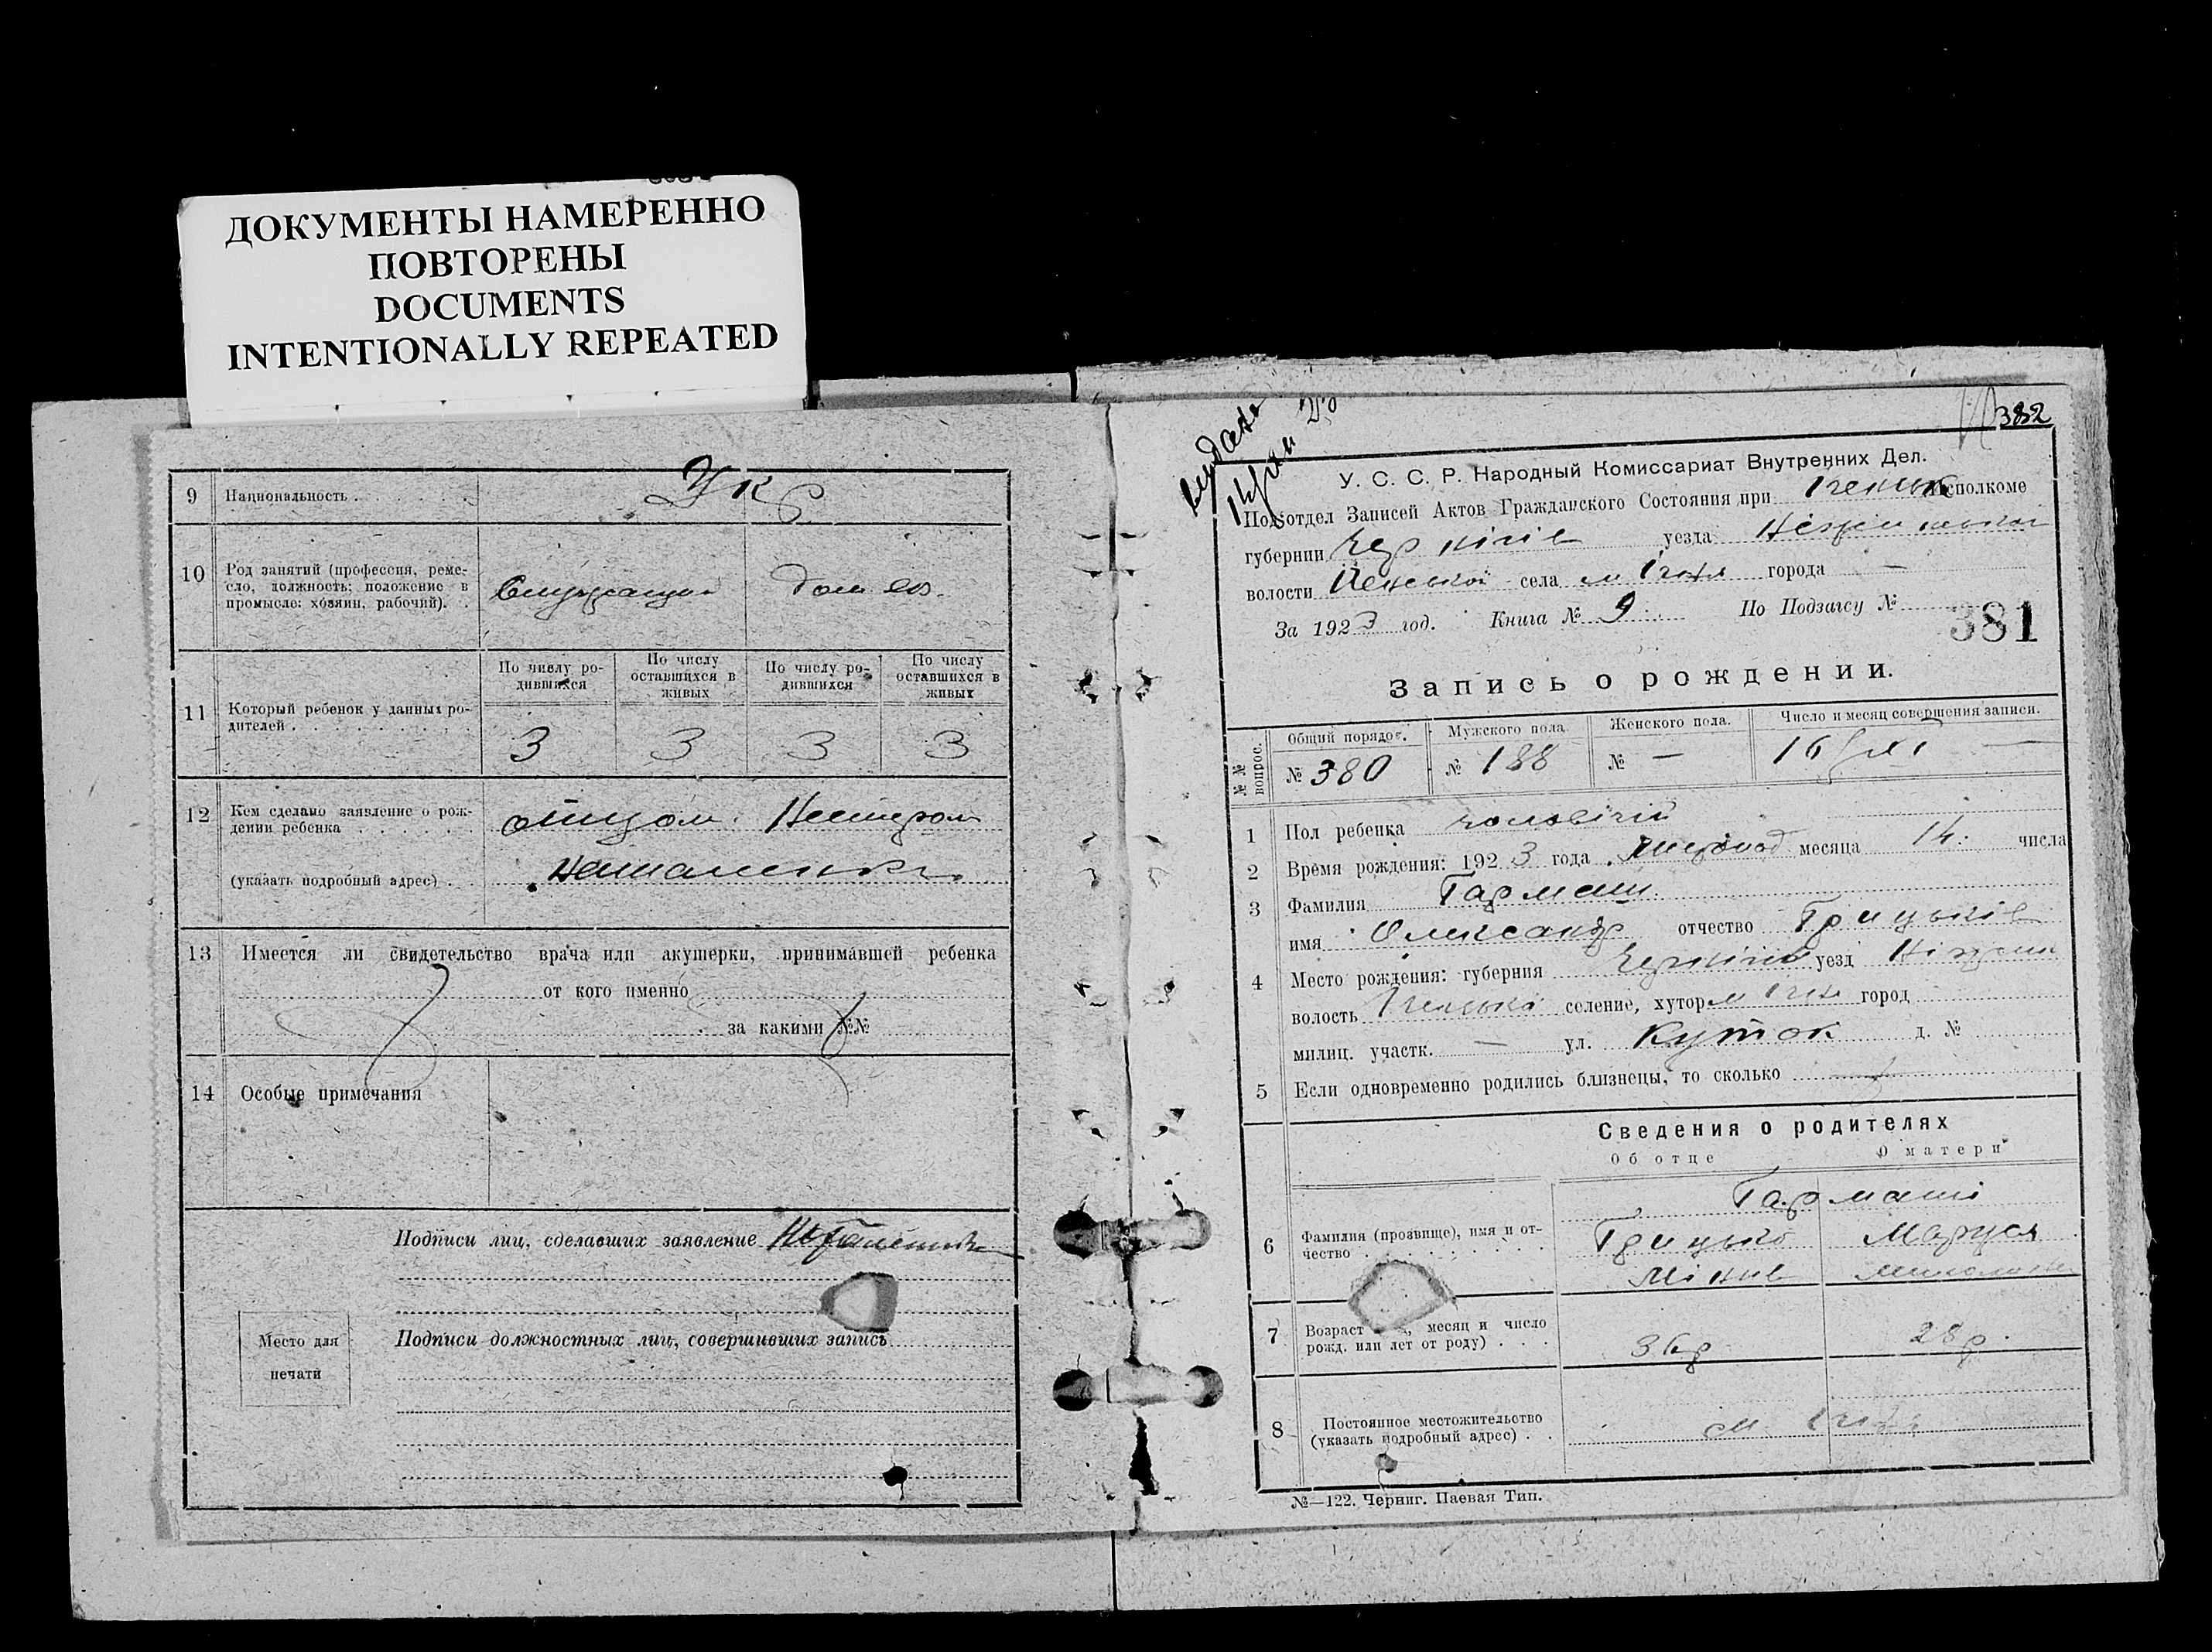 ДОКУМЕНТЫ НАМЕРЕННО
ПОВТОРЕНЫ
DOCUMENTS
INTENTIONALLY REPEATED
9 Национальность Укр
10 Род занятий (профессия, реме-
сло, должность; положение в
промысле: хозяин, рабочий).
По числу ро-
дившихся
По числу
оставшихся в
живых
По числу ро-
дившихся
По числу
оставшихся в
живых
11 Который ребенок у данных ро-
дителей
3 3 3 3
12 Кем сделано заявление о рож-
дении ребенка отцом
(указать подробный адрес)
13 Имеется ли свидетельство врача или акушерки, принимавшей ребенка
от кого именно
за какими №№
14 Особые примечания
Подписи лиц, сделавших заявление
Место для
печати
Подписи должностных лиц, совершивших запись
382
У. С. С. Р. Народный Комиссариат Внутренних Дел.
Подотдел Записей Актов Гражданского Состояния при Исполкоме
губернии Чернігів уезда
волости села м Ічня города —
За 1923 год. Книга № 9 По Подзагсу №
381
Запись о рождении.
№№ вопрос.
Общий порядок.
Мужского пола
Женского пола.
Число и месяц совершения записи.
№ 380 № 188 № — 16/XI
1 Пол ребенка чоловічий
2 Время рождения: 1923 года Листопад месяца 14 числа
3 Фамилия Гармаш
имя Олександр отчество Грицьків
4 Место рождения: губерния уезд Ніжин
волость селение, хутор м Ічня город
милиц. участк. — ул. Куток д. №
5 Если одновременно родились близнецы, то сколько —
Сведения о родителях
Об отце О матери
Гармаші
6 Фамилия (прозвище), имя и от-
чество
Грицько Маруся
7 Возраст месяц и число
рожд. или лет от роду)
36р 28р.
8 Постоянное местожительство
(указать подробный адрес)
м. Ічня
№—122. Черниг. Паевая Тип.